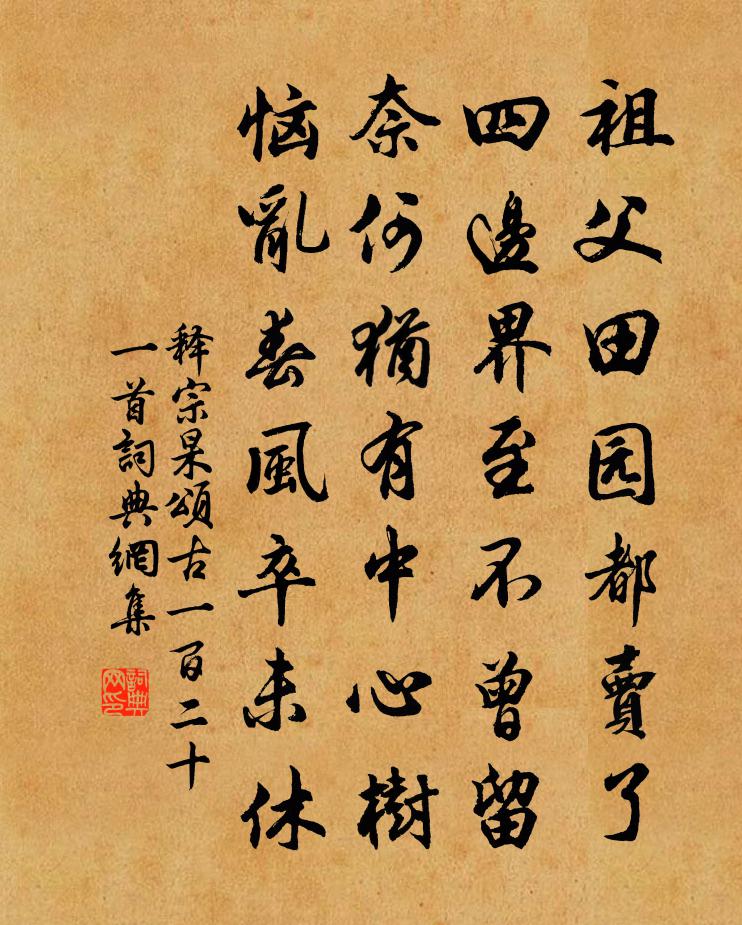 祖父田园都賣了
四邊界至不曾留
奈何猶有中心樹
恼亂春風卒未休
释宗杲頌古一百二十
一首詞典網集
詞典网印